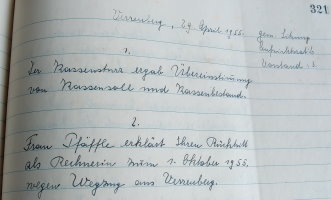 321
Verrenberg, 29. April 1955.
gem. Sitzung
Vorstand: 1
1.
Der Kassensturz ergab Übereinstimmung
von Kassensoll und Kassenbestand.
2.
Frau Pfäffle erklärt Ihren Rücktritt
als Rechnerin zum 1. Oktober 1955.
wegen Wegzug aus Verrenberg.